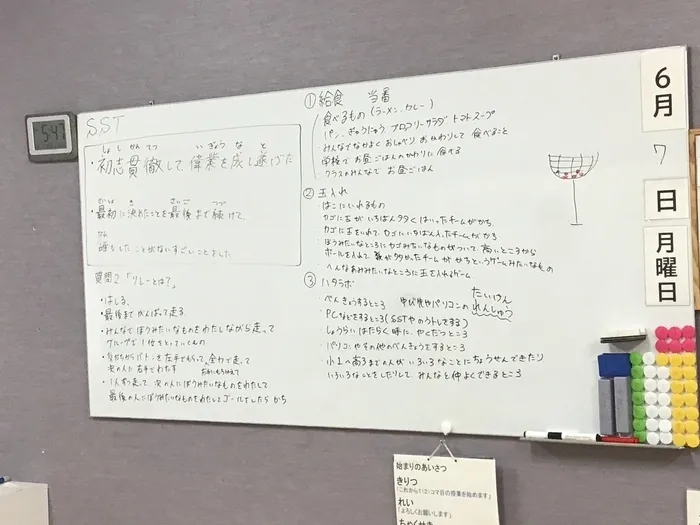 SST
しょし かんてつ いぎょう な と
・初志貫徹して、偉業を成し遂げた
さいご つづ
・最初に決めたことを最後まで続けて、
誰もしたことがないすごいことをした
質問2「リレーとは?」
・はしる、
・最後までがんばって走る。
・みんなでぼうみたいなものをわたしながら走って
グループで1位をとっていくもの
左手でもらって、全力で走って
次の人に右手でわたす
・1人ずつ走って、次の人にぼうみたいなものをわたして
最後の人にぼうみたいなものをわたしてゴールをしたらかち
①給食 当番
食べるもの(ラーメン、カレー)
パン、ぎゅうにゅう ブロッコリーサラダ トマトスープ
みんなでなかよく おしゃべり おかわりして 食べること
学校で お昼ごはんのかわりに 食せる
クラスのみんなで お昼ごはん
②玉入れ
はこにいれるもの
カゴに玉がいちばん多くはいったチームがかち。
カゴに玉をいれて、カゴにいちばん入ったチームがかち
ぼうみたいなところにカゴみたいなものがついて、高いところから
ボールを入れて 数が多かったチームが かちというゲームみたいなもの
へんなあみみたいなところに玉を入れるゲーム
③ハタラボ
べんきょうするところ 学び度やパソコンの たいけん
れんしゅう
PCなどをするところ(SSTやのうトレをする)
しょうらいはたらく時に、やくだつところ
パソコンやその他のべんきょうをするところ
小1~高3までの人が いろいろなことにちょうせんできたり
いろいろなことをしたりして、みんなと仲よくできるところ
6月
7
日
月曜日
547
始まりのあいさつ
きりつ
「これから1(2)コマ目の授業を始めます」
れい
「よろしくお願いします」
ちゃくせき